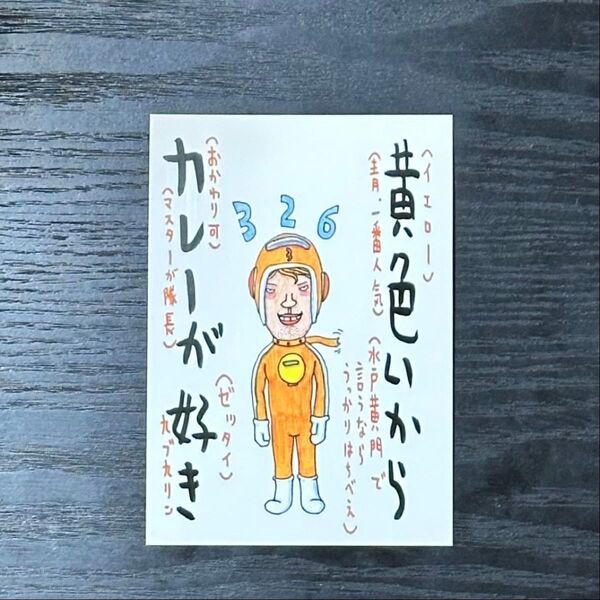 （イエロー）
黄色いから
（青、一番人気）
（水戸黄門で
言うなら
うっかりはちべえ）
326
（おかわり可）
カレーが好き
（マスターが隊長）
（ゼッタイ）